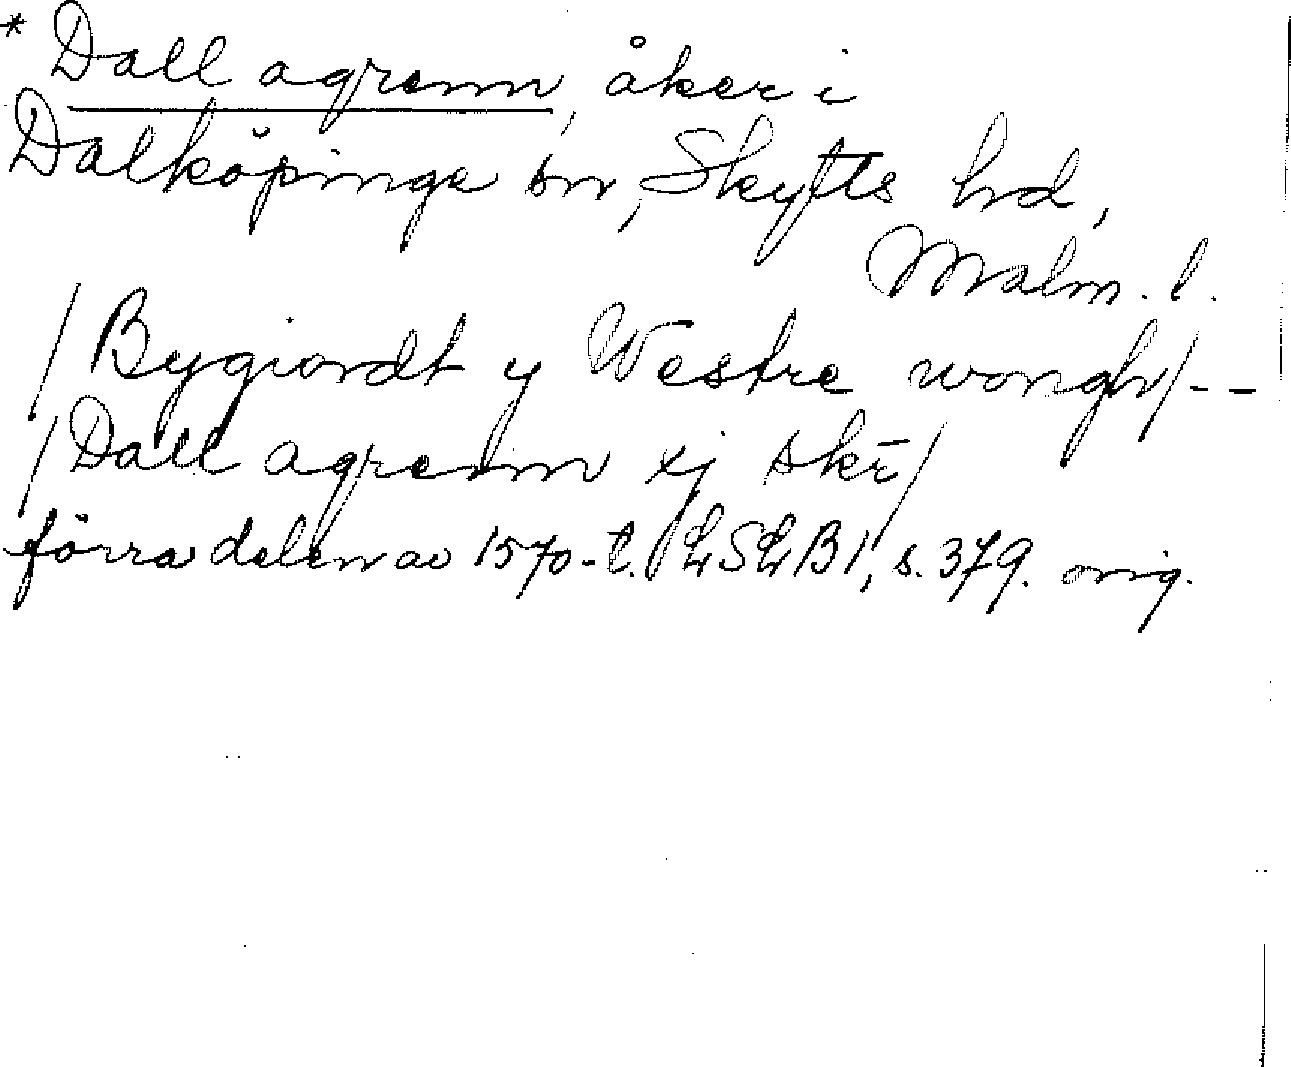 * Dall agrenn, åker i
Dalköpinge sn, Skytts hd,
Malm. l.
/Bygiordt y Westre wongh/--
/Dall agrenn xj skr̄/
förra delen av 1570-t. LSLB1, s. 379. orig.